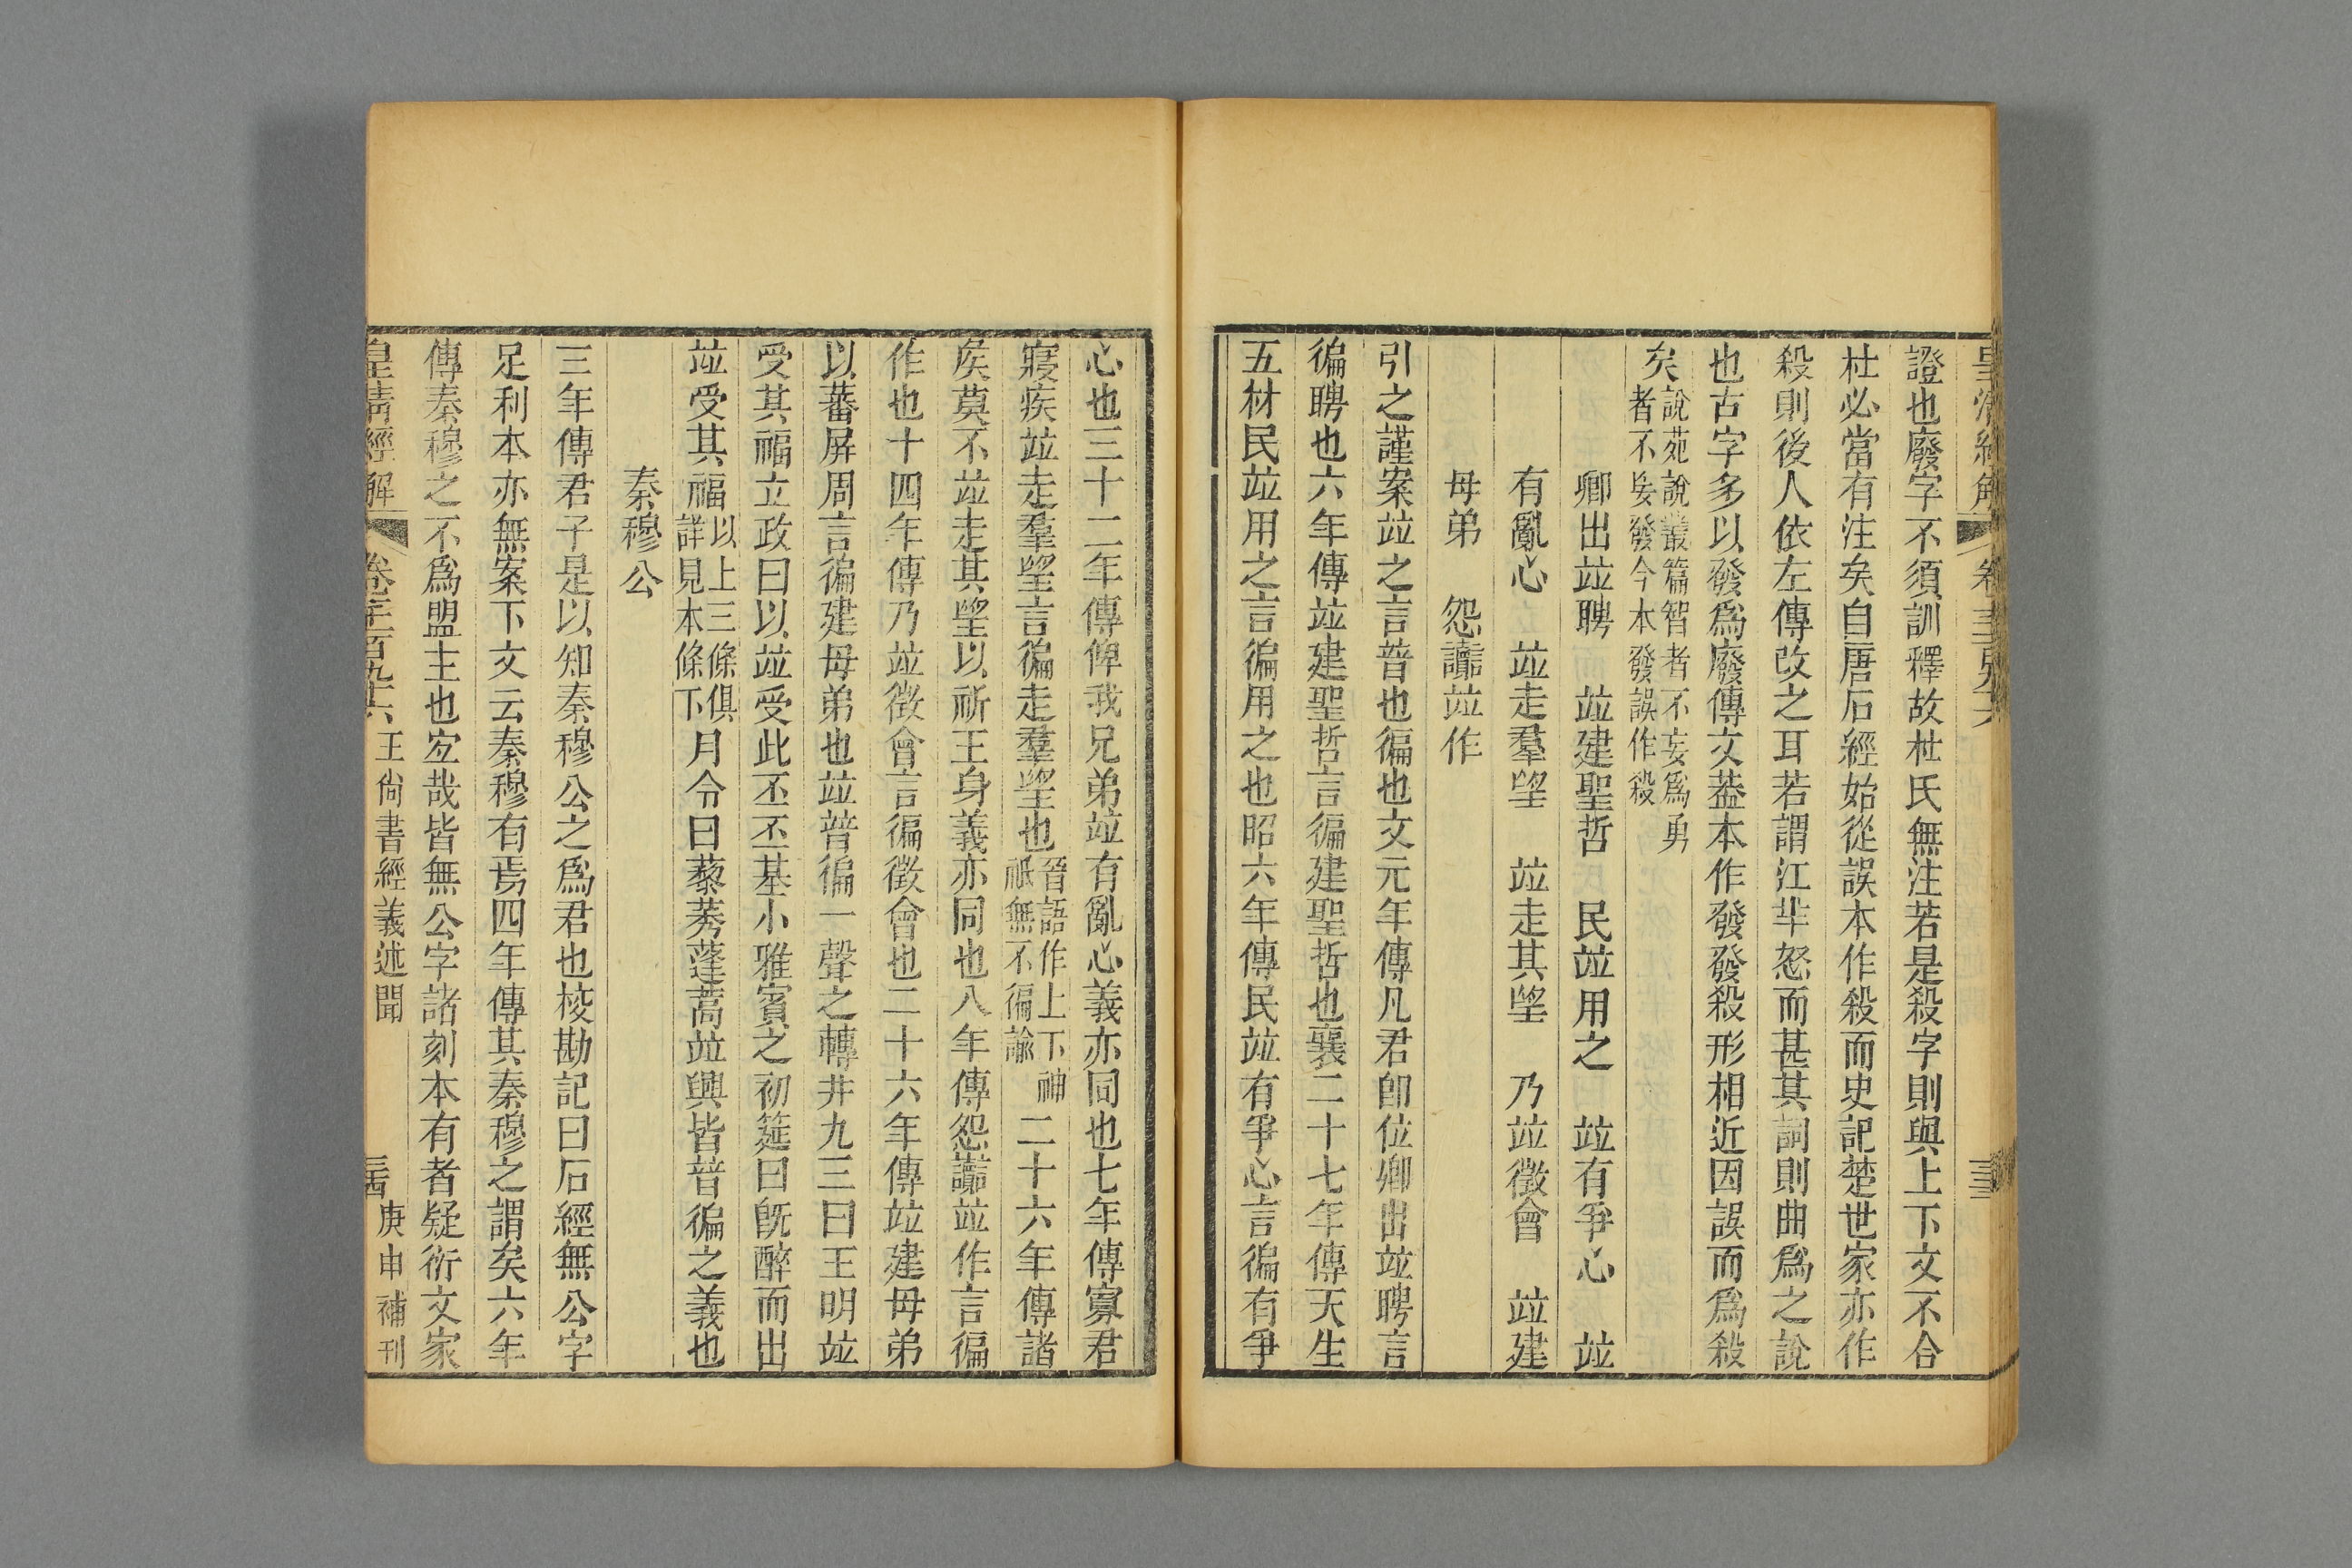 證也廢字不須訓釋故杜氏無注若是殺字則與上下文不合
杜必當有注矣自唐石經始從誤本作殺而史記楚世家亦作
殺則後人依左傳改之耳若謂江羋怒而甚其詞則曲爲之說
也古字多以發爲廢傳文葢本作發發殺形相近因誤而爲殺
矣
說苑說叢篇智者不妄爲勇
者不妄發今本發誤作殺
卿出竝聘　竝建聖哲　民竝用之　竝有爭心　竝
有亂心　竝走羣望　竝走其望　乃竝徵會　竝建
母弟　怨讟竝作
引之謹案竝之言普也徧也文元年傳凡君卽位卿出竝聘言
徧聘也六年傳竝建聖哲言徧建聖哲也襄二十七年傳天生
五材民竝用之言徧用之也昭六年傳民竝有爭心言徧有爭
心也三十二年傳俾我兄弟竝有亂心義亦同也七年傳寡君
寢疾竝走羣望言徧走羣望也
晉語作上下神
祇無不徧諭
二十六年傳諸
矦莫不竝走其望以祈王身義亦同也八年傳怨讟竝作言徧
作也十四年傳乃竝徵會言徧徵會也二十六年傳竝建母弟
以蕃屏周言徧建母弟也竝普徧一聲之轉井九三曰王明竝
受其福立政曰以竝受此丕丕基小雅賓之初筵曰旣醉而出
竝受其福
以上三條俱
詳見本條下
月令曰藜莠蓬蒿竝興皆普徧之義也
秦穆公
三年傳君子是以知秦穆公之爲君也挍勘記曰石經無公字
足利本亦無案下文云秦穆有焉四年傳其秦穆之謂矣六年
傳秦穆之不爲盟主也宐哉皆無公字諸刻本有者疑衍文家
皇清經解
卷一千一百九十六
王尙書經義述聞
三古
庚申補刊